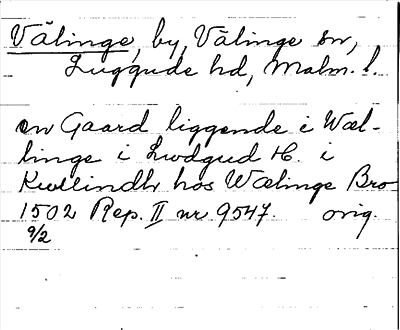 Välinge, by, Välinge sn,
Luggude hd, Malm. l.
en Gaard liggende i Wæl-
linge i Lwdgud H. i
Kwllindh hos Wælinge Bro
1502 Rep. II nr 9547. orig.
9/2